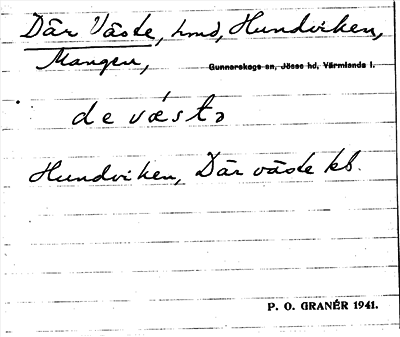 Där Väste, hmd, Hundviken,
Mangen,
Gunnarskogs sn, Jösse hd, Värmlands l.
de væ̀stə
Hundviken, Där väste kb.
P. O. GRANÉR 1941.